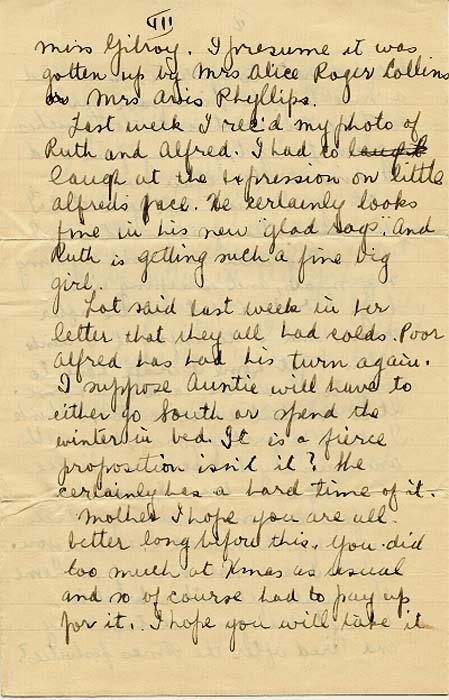 VII
miss Gilroy. I presume it was
gotten up by Mrs Alice Roger Collins
or Mrs Arvis Phyllips.
Last week I rec'd my photo of
Ruth and Alfred. I had to laught
laugh at the expression on little
alfreds face. He certainly looks
fine in his new "glad rags", And
Ruth is getting such a fine big
girl.
Lot said last week in her
letter that they all had colds. Poor
Alfred has had his turn again.
I suppose Auntie will have to
either go South or spend the
winter in bed. It is a fierce
proposition isn't it? She
certainly has a hard time of it.
Mother I hope you are all
better long before this. You did
too much at Xmas as usual
and so of course had to pay up
for it. I hope you will take it